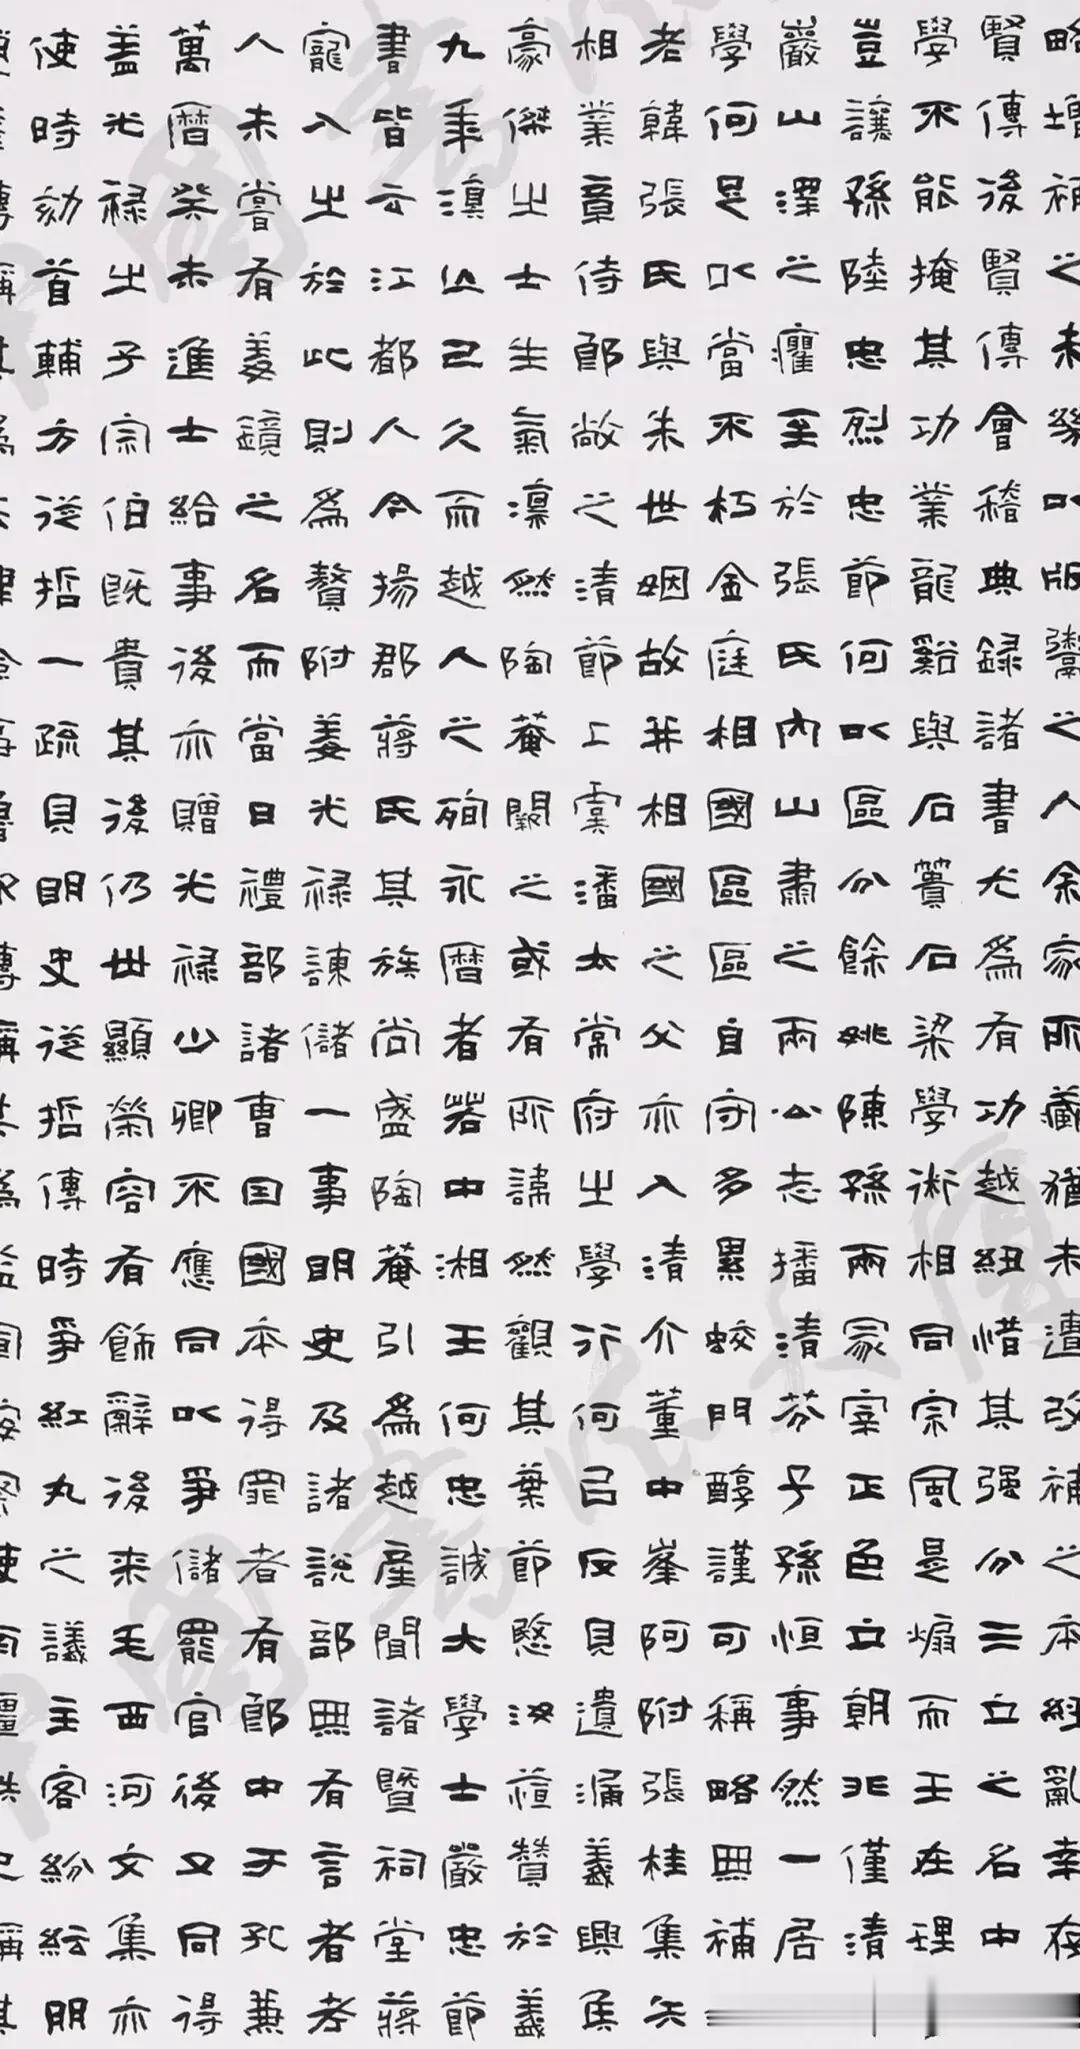 略增補之未緣以版鬻之人余家所藏猶未遭改補之本經亂幸存
賢傳後賢傳會稽典錄諸書尤為有功越紐惜其強分三立之名中
學不能掩其功業龍谿與石簣石梁學術相同宗風是煽而王在理
豈讓孫陸忠烈忠節何以區分餘姚陳孫兩冢宰正色立朝北僅清
嚴山澤之癯至於張氏內山肅之兩公志播清芬子孫恒事然一居
學何足以當不朽金庭相國區區自守多累蛟門醇謹可稱略無補
老韓張氏與朱世姻故并相國之父亦入清介董中峯阿附張桂集矢
相業章侍郎敞之清節上虞潘太常府之學行何以反見遺漏義興侯
豪傑之士生氣凜然陶菴闕之或有所諱然觀其葉節愍汝贊於義
九年滇亾已久而越人之殉永曆者若中湘王何忠誠大學士嚴忠節
書皆云江都人今揚郡蔣氏其族尚盛陶菴引為越產聞諸暨祠堂蔣
寵入之於此則為贅附姜光祿諫儲一事明史及諸說部無有言者考
人未嘗有姜鏡之名而當日禮部諸曹因國本得罪者有郎中于孔兼
萬曆癸未進士給事後亦贈光祿少卿不應同以爭儲罷官後又同得
蓋光祿之子宗伯既貴其後仍世顯榮容有飾辭後來毛西河文集亦
使時劾首輔方從哲一疏見明史從哲傳時爭紅丸之議主客紛紜明